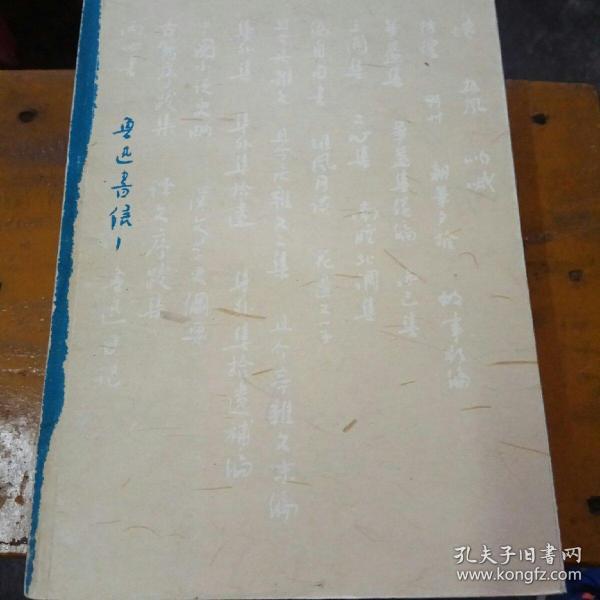 坟 热风 呐喊
彷徨 野草 朝花夕拾 故事新编
华盖集 华盖集续编 而已集
三闲集 二心集 南腔北调集
伪自由书 准风月谈 花边文学
且介亭杂文 且介亭杂文二集 且介亭杂文末编
集外集 集外集拾遗 集外集拾遗补编
中国小说史略 汉文学史纲要
古籍序跋集 译文序跋集
两地书
鲁迅书信1
鲁迅日记
孔夫子旧书网
www.kongfz.com